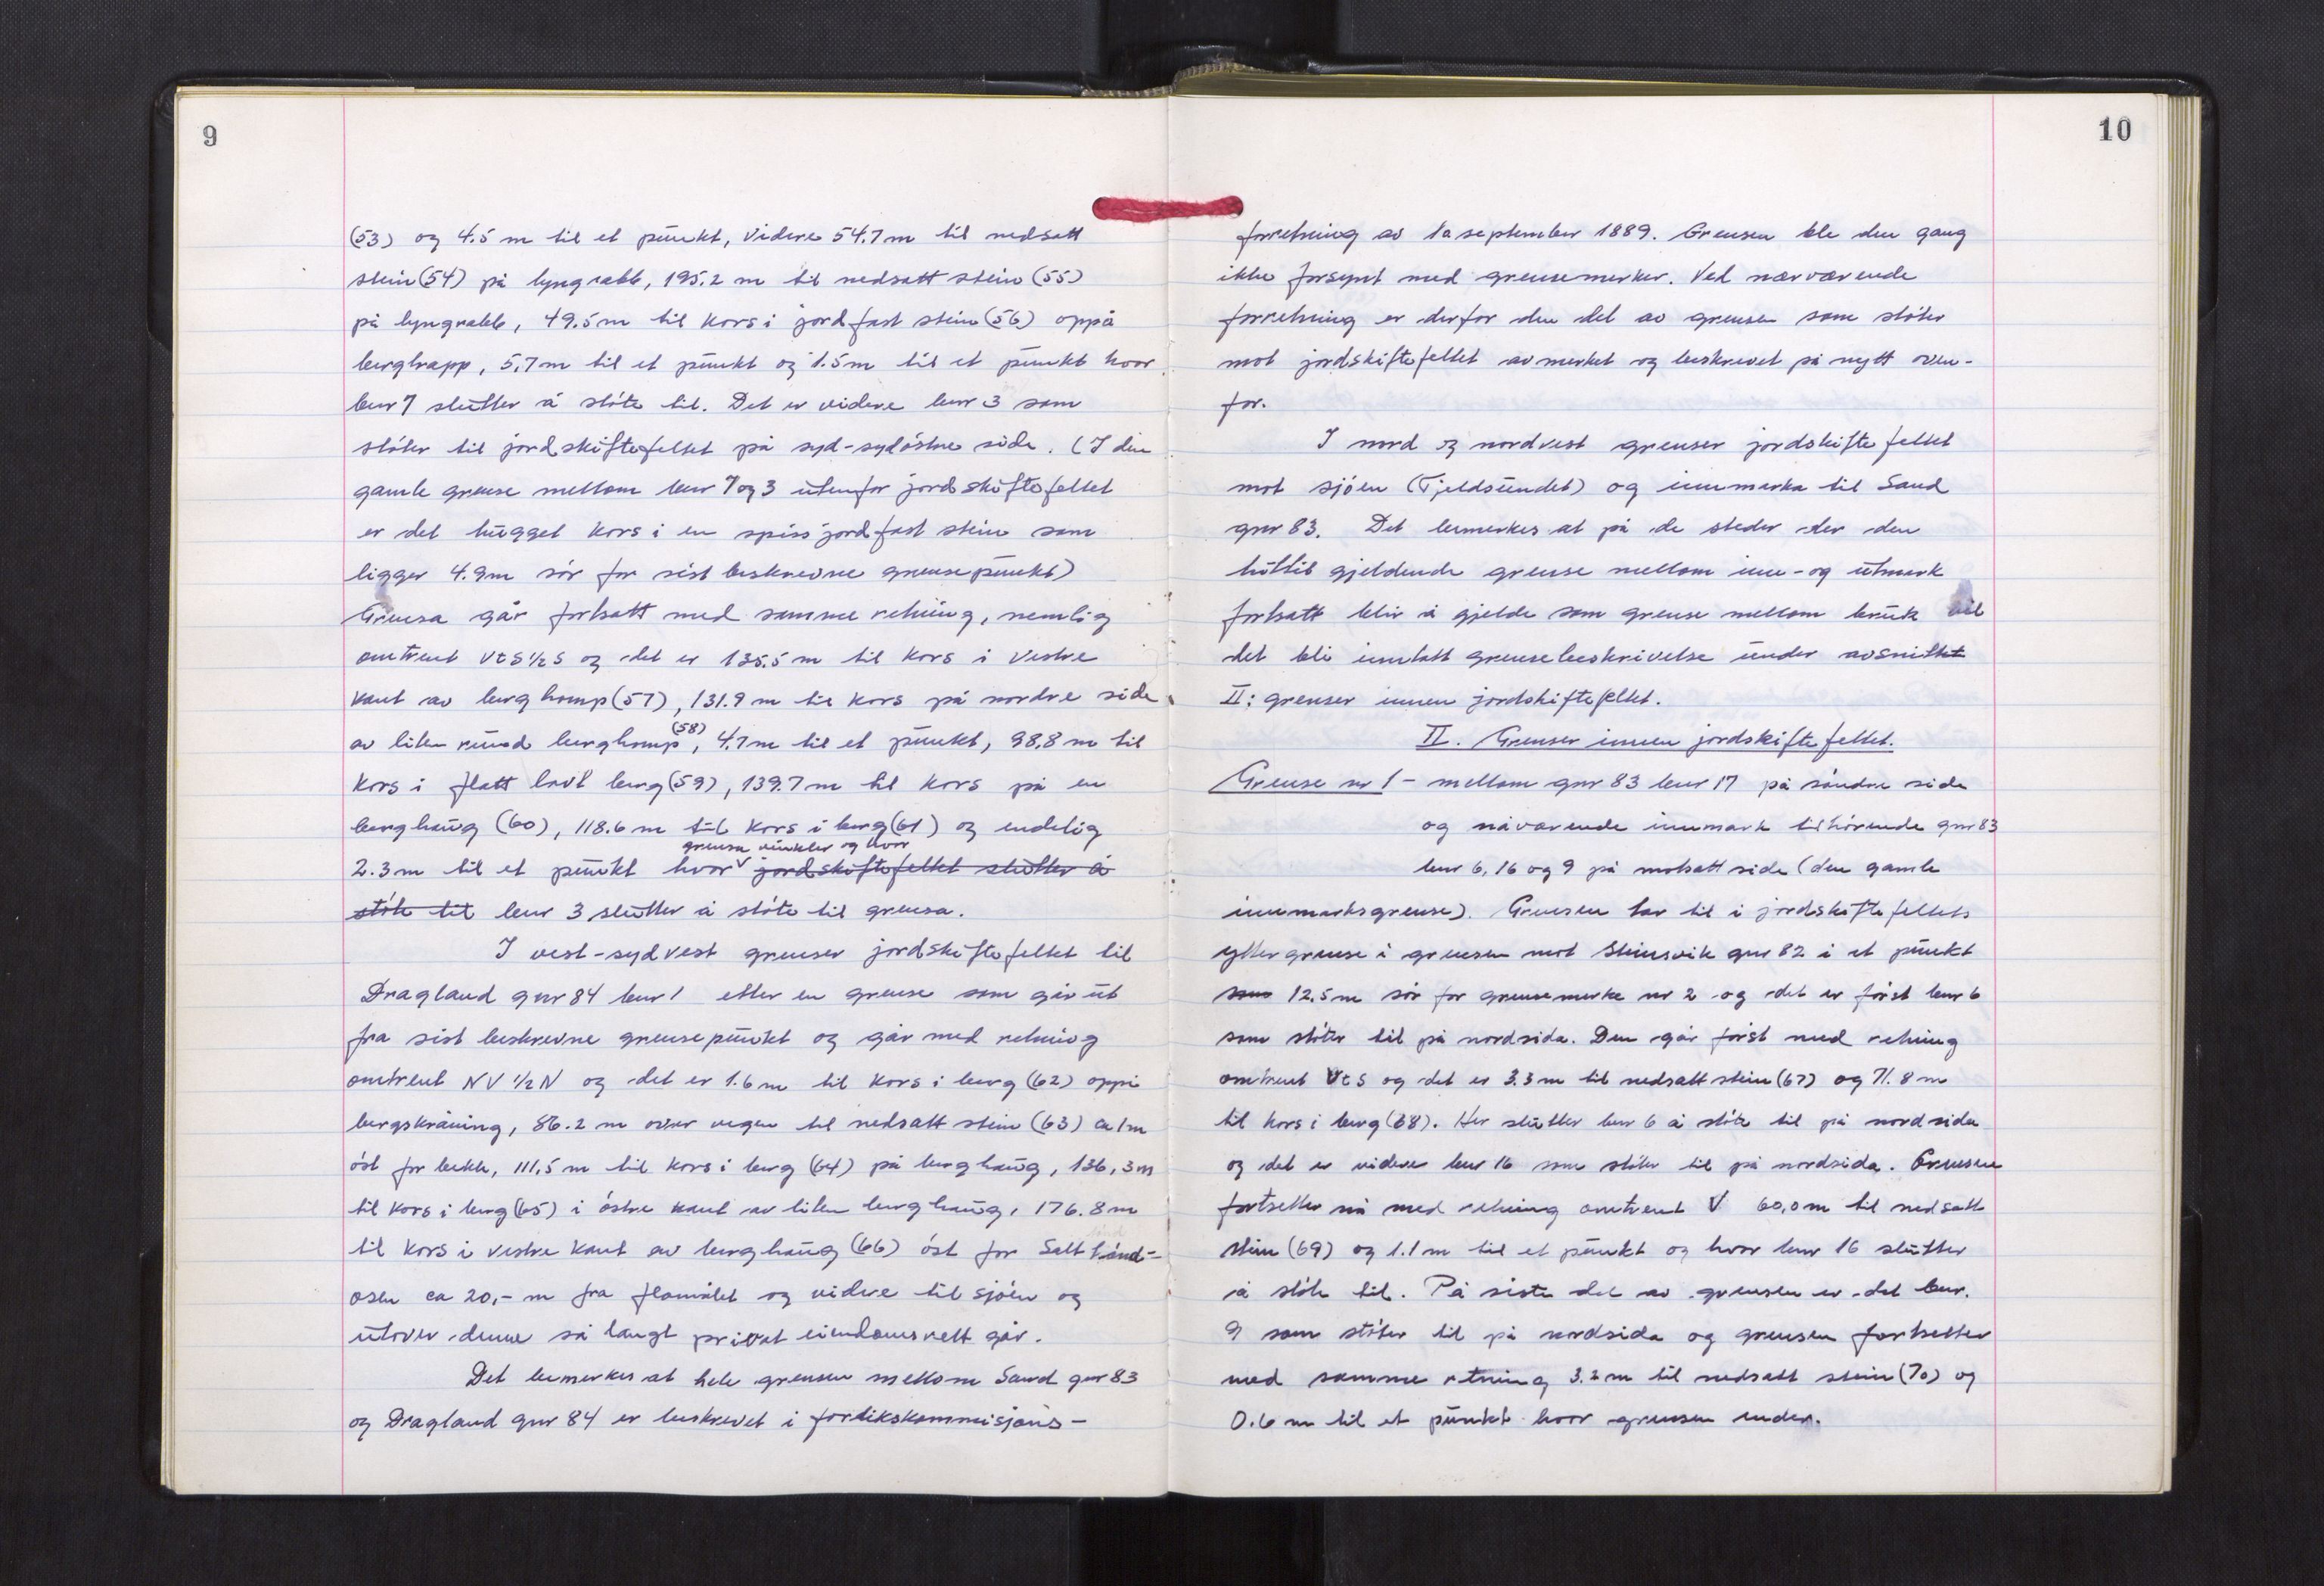 9
(53) og 4.5 m til et punkt, videre 54.7 m til nedsatt
stein (54) på lyngrabb, 195.2 m til nedsatt stein (55)
på lyngrabb, 49.5 m til kors i jordfast stein (56) oppå
bergtrapp, 5.7 m til et punkt og 1.5 m til et punkt hvor
bnr 7 slutter å støte til. Det er videre bnr 3 som
støter til jordskiftefeltet på syd-sydøstre side. (I den
gamle grense mellom bnr 7 og 3 utenfor jordskiftefeltet
er det hugget kors i en spiss jordfast stein som
ligger 4.9 m sør for sist beskrevne grensepunkt)
Grensa går fortsatt med samme retning, nemlig
omtrent VtS ½ S og det er 135.5 m til kors i vestre
kant av berghomp (57), 131.9 m til kors på nordre side
av liten rund berghomp (58), 4.7 m til et punkt, 98,8 m til
kors i flatt lavt berg (59), 139.7 m til kors på en
berghaug (60), 118.6 m til kors i berg (61) og endelig
grensa vinkler og hvor
2.3 m til et punkt hvor jordskiftefeltet slutter å
støte til bnr 3 slutter å støte til grensa.
I vest-sydvest grenser jordskiftefeltet til
Dragland gnr 84 bnr 1 etter en grense som går ut
fra sist beskrevne grensepunkt og går med retning
omtrent NV ½ N og det er 1.6 m til kors i berg (62) oppi
bergskråning, 86.2 m over vegen til nedsatt stein (63) ca 1 m
øst for bekk, 111,5 m til kors i berg (64) på berghaug, 136,3 m
til kors i berg (65) i østre kant av liten berghaug, 176.8 m
til kors i vestre kant av berghaug (66) øst for Saltstrand-
osen ca 20,- m fra flomålet og videre til sjøen og
utover denne så langt privat eiendomsrett går.
Det bemerkes at hele grensen mellom Sand gnr 83
og Dragland gnr 84 er beskrevet i forlikskommisjons-
10
forretning av 10 september 1889. Grensen ble den gang
ikke forsynt med grensemerker. Ved nærværende
forretning er derfor den del av grensen som støter
mot jordskiftefeltet avmerket og beskrevet på nytt oven-
for.
I nord og nordvest grenser jordskiftefeltet
mot sjøen (Tjeldsundet) og innmarka til Sand
gnr 83. Det bemerkes at på de steder der den
hittil gjeldende grense mellom inn- og utmark
fortsatt blir å gjelde som grense mellom bruk vil
det bli inntatt grensebeskrivelse under avsnitt
II: grenser innen jordskiftefeltet.
II. Grenser innen jordskiftefeltet.
Grense nr 1 - mellom gnr 83 bnr 17 på søndre side
og nåværende innmark tilhørende gnr 83
bnr 6, 16 og 9 på motsatt side (den gamle
innmarksgrense). Grensen tar til i jordskiftefeltets
yttergrense i grensen mot Steinsvik gnr 82 i et punkt
som 12.5 m sør for grensemerke nr 2 og det er først bnr 6
som støter til på nordsida. Den går først med retning
omtrent VtS og det er 3.3 m til nedsatt stein (67) og 71.8 m
til kors i berg (68). Her slutter bnr 6 å støte til på nordsida
og det er videre bnr 16 som støter til på nordsida. Grensen
fortsetter nå med retning omtrent V 60,0 m til nedsatt
stein (69) og 1.1 m til et punkt og hvor bnr 16 slutter
å støte til. På siste del av grensen er det bnr.
9 som støter til på nordsida og grensen fortsetter
med samme retning 3.2 m til nedsatt stein (70) og
0.6 m til et punkt hvor grensen ender.